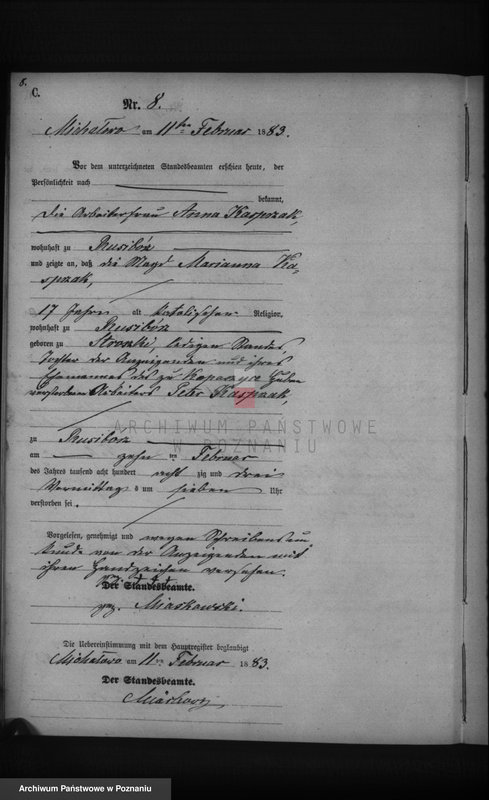 8.
C.
Nr. 8.
Michałowo am 11ten Februar 1883.
Vor dem unterzeichneten Standesbeamten erschien heute, der
Persönlichkeit nach
bekannt,
die Arbeiterfrau Anna Kasprzak,
wohnhaft zu Rusiborz
und zeigte an, daß die Magd Marianna Ka-
sprzak,
17 Jahre alt katolischer Religion,
wohnhaft zu Rusiborz
geboren zu ledigen Standes
Tochter der Anzeigenden und ihres
Ehemannes des zu
verstorbenen Arbeiters Peter Kasprzak,
zu Rusiborz
am zehn ten Februar
des Jahres tausend acht hundert acht zig und drei
Vormittags um sieben Uhr
verstorben sei.
Vorgelesen, genehmigt und wegen Schreibensun-
kunde von der Anzeigenden mit
ihren Handzeichen versehen.
Der Standesbeamte.
gez. Miaskowski.
Die Uebereinstimmung mit dem Hauptregister beglaubigt
Michałowo am 11ten Februar 1883.
Der Standesbeamte.
ARCHIWUM PAŃSTWOWE
W POZNANIU
Archiwum Państwowe w Poznaniu